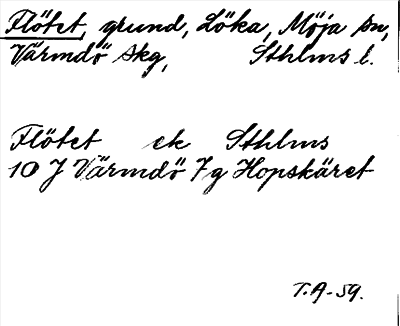 Flötet, grund, Löka, Möja sn,
Värmdö skg, Sthlms l.
Flötet ek Sthlms
10 J Värmdö 7 g Hopskäret
T.A-59.